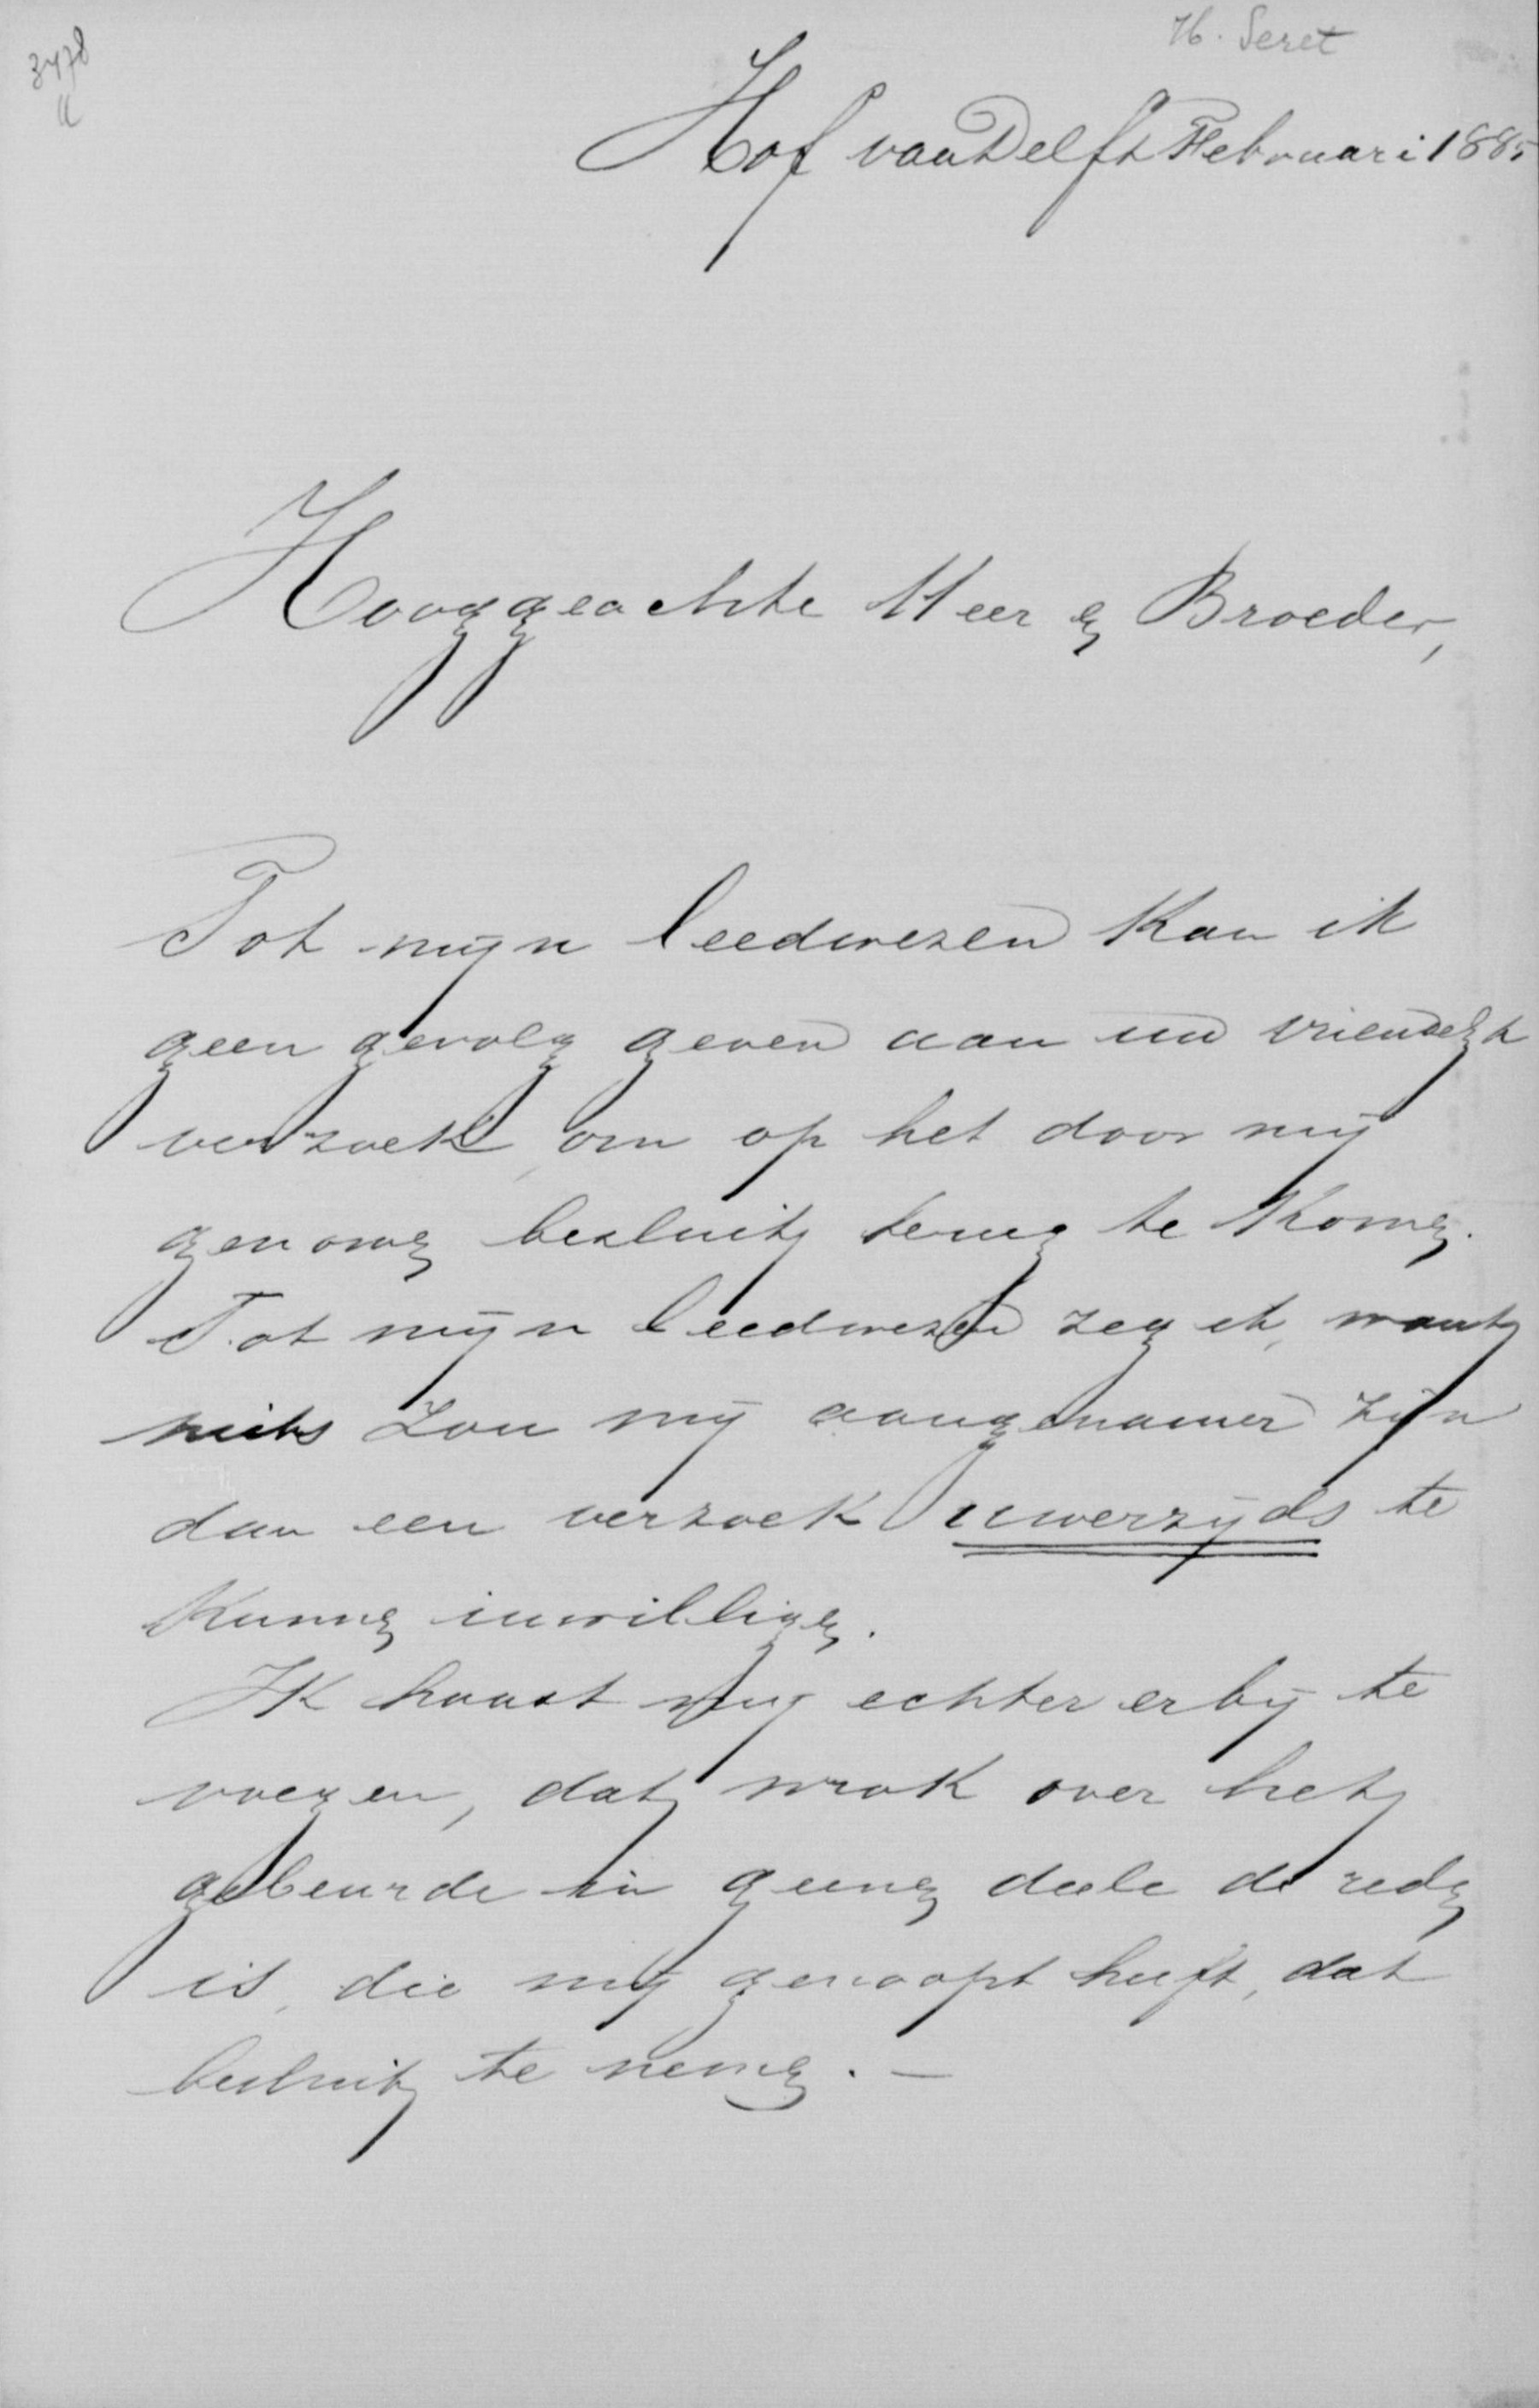 3478
H. Seret
Hof van Delft Februari 1885
Hooggeachte Heer en Broeder,
Tot mijn leedwezen kan ik
geen gevolg geven aan uw vriendelijk
verzoek, om op het door mij
genomen besluit terug te komen.
Tot mijn leedwezen zeg ik, want
niets zou mij aangenamer zijn
dan een verzoek uwerzijds te
kunnen inwilligen.
Ik haast mij echter erbij te
voegen, dat wrok over het
gebeurde in geenen deele de reden
is, die mij genoopt heeft, dat
besluit te nemen. —